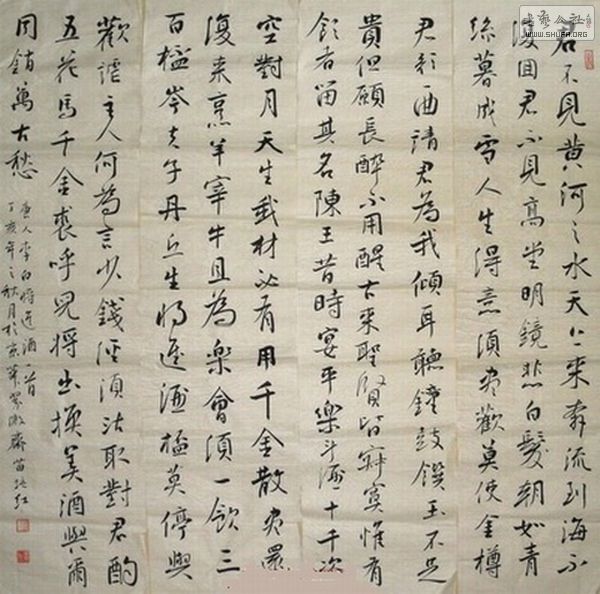 君不見黃河之水天上來奔流到海不
復回君不見高堂明鏡悲白髮朝如青
絲暮成雪人生得意須盡歡莫使金樽
君歌曲請君為我傾耳聽鐘鼓饌玉不足
貴但願長醉不用醒古來聖賢皆寂寞惟有
飲者留其名陳王昔時宴平樂斗酒十千次
空對月天生我材必有用千金散盡還
復來烹羊宰牛且為樂會須一飲三
百杯岑夫子丹丘生將進酒杯莫停與
歡謔主人何為言少錢徑須沽取對君酌
五花馬千金裘呼兒將出換美酒與爾
同銷萬古愁
唐人李白將進酒一首
丁亥年之秋月於京華翠微齋苗培红
书艺公社
WWW.SHUFA.ORG